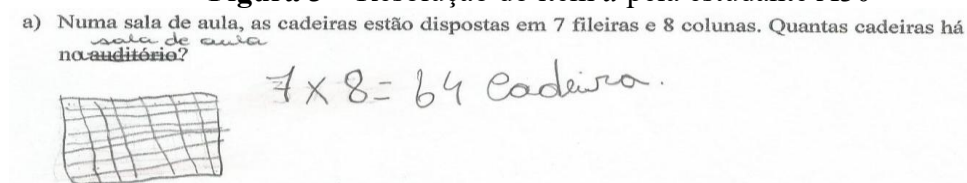 a) Numa sala de aula, as cadeiras estão dispostas em 7 fileiras e 8 colunas. Quantas cadeiras há
sala de aula
no auditório?
7 x 8 = 64 Cadeira.